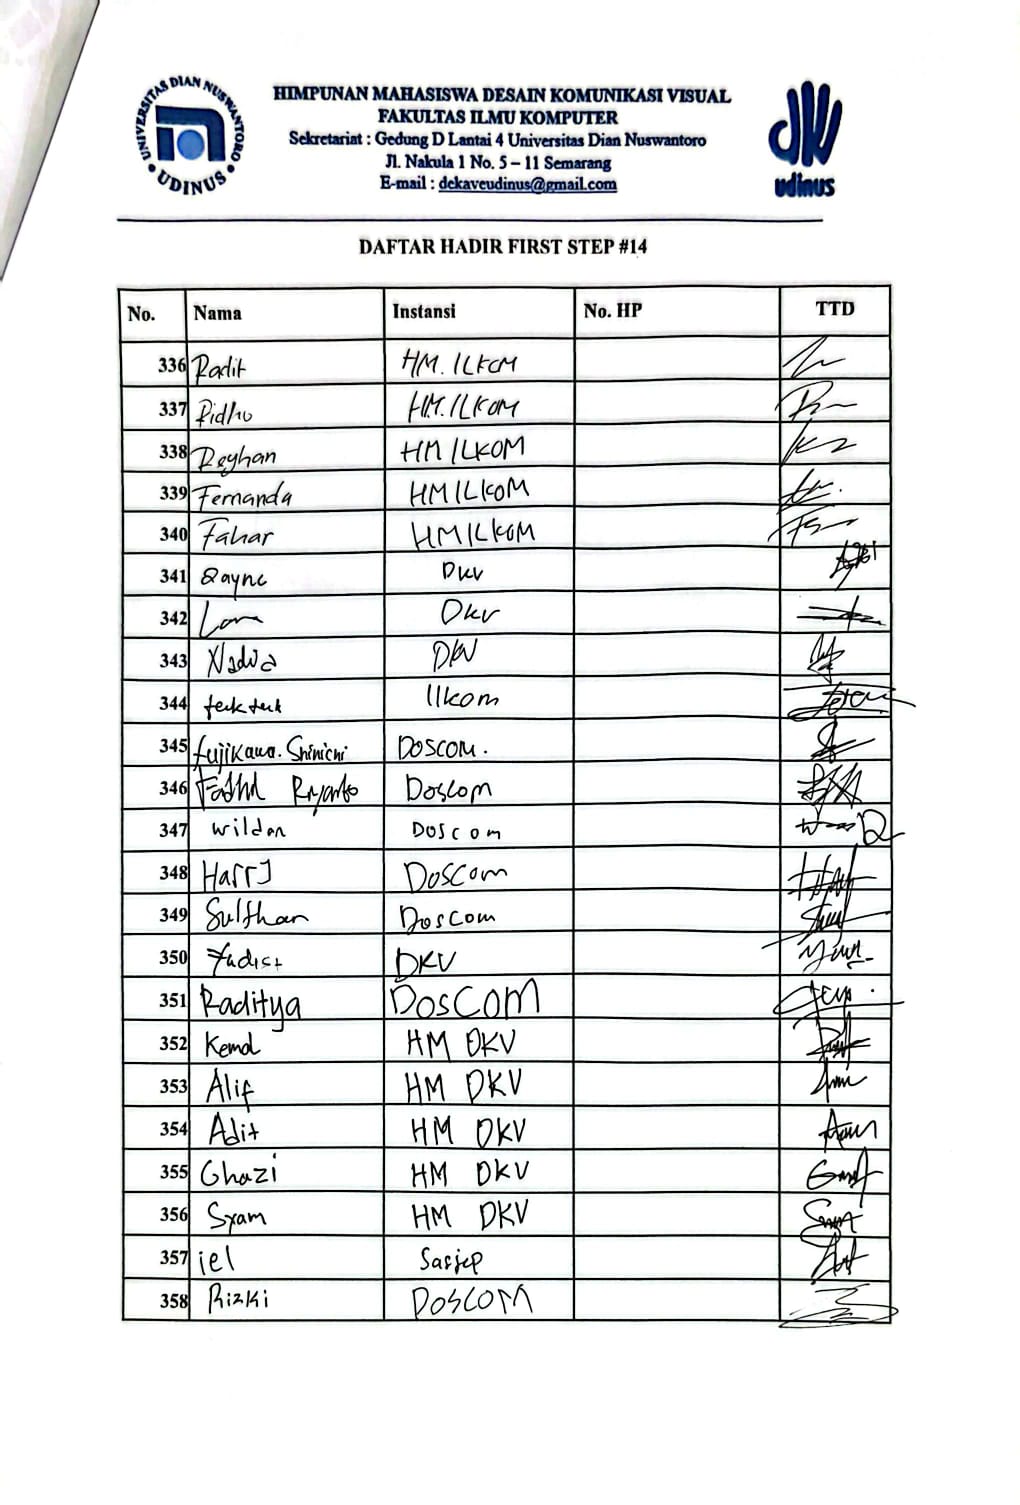 UNIVERSITAS DIAN NUSWANTORO
UDINUS
HIMPUNAN MAHASISWA DESAIN KOMUNIKASI VISUAL
FAKULTAS ILMU KOMPUTER
Sekretariat : Gedung D Lantai 4 Universitas Dian Nuswantoro
Jl. Nakula 1 No. 5 – 11 Semarang
E-mail : dekaveudinus@gmail.com
udinus
DAFTAR HADIR FIRST STEP #14
No. Nama Instansi No. HP TTD
336 Radit HM. ILKOM
337 Ridho HM. ILKOM
338 Reyhan HM ILKOM
339 Fernanda HMILKOM
340 Fahar HMILKOM
341 Rayne DKV
342 DKV
343 Nadia DKV
344 tecktech Ilkom
345 fujikawa. Shinichi DOSCOM.
346 Fadhil Riyanto Doscom
347 wildan Doscom
348 Harry DOSCOM
349 Sulthan Doscom
350 Yudist DKV
351 Raditya DOSCOM
352 Kemal HM DKV
353 Alif HM DKV
354 Adit HM DKV
355 Ghazi HM DKV
356 Syam HM DKV
357 iel Sasjep
358 Rizki DOSCOM